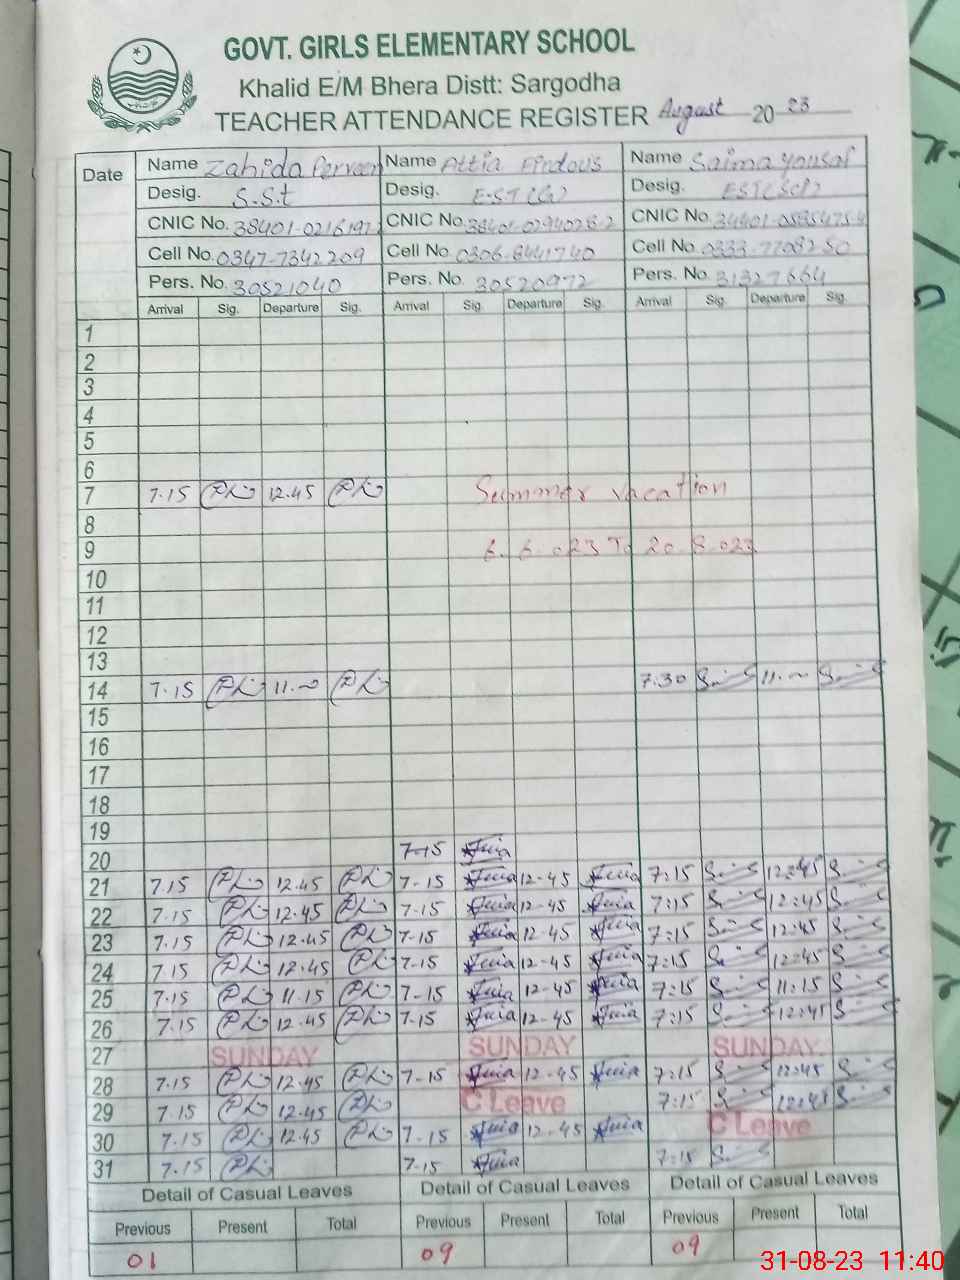 GOVT. GIRLS ELEMENTARY SCHOOL
Khalid E/M Bhera Distt: Sargodha
TEACHER ATTENDANCE REGISTER August 20 23
Date Name Zahida Perveen Name Attia Firdous Name Saima Yousaf
Desig. S.S.t Desig. E.S.T (G) Desig. EST(Sci)
CNIC No. CNIC No. CNIC No.
Cell No. 0347-7342209 Cell No. 0306-8441740 Cell No. 0333-7708250
Pers. No. 30521040 Pers. No. 30520972 Pers. No. 31327664
Arrival Sig. Departure Sig. Arrival Sig. Departure Sig. Arrival Sig. Departure Sig.
1
2
3
4
5
6
7 7.15 12.45 Summer vacation
8
9 6.6.023 To 20.8.023
10
11
12
13
14 7.15 11.00 7.30 11.00
15
16
17
18
19
20 7-15
21 7.15 12.45 7-15 12-45 7:15 12:45
22 7.15 12.45 7-15 12-45 7:15 12:45
23 7.15 12.45 7-15 12-45 7:15 12:45
24 7.15 12.45 7-15 12-45 7:15 12:45
25 7.15 11.15 7-15 12-45 7:15 11:15
26 7.15 12.45 7-15 12-45 7:15 12:45
27 SUNDAY SUNDAY SUNDAY
28 7.15 12.45 7-15 12-45 7:15 12:45
29 7.15 12.45 C Leave 7:15 12:45
30 7.15 12.45 7-15 12-45 C Leave
31 7.15 7-15 7:15
Detail of Casual Leaves Detail of Casual Leaves Detail of Casual Leaves
Previous Present Total Previous Present Total Previous Present Total
01 09 09
31-08-23 11:40